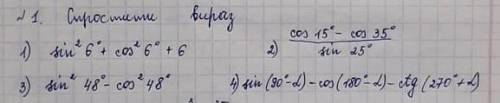 №1. Спростити вираз
1) sin² 6° + cos² 6° + 6 2) (cos 15° - cos 35°) / sin 25°
3) sin² 48° - cos² 48° 4) sin (90°-α) - cos (180°-α) - ctg (270°+α)